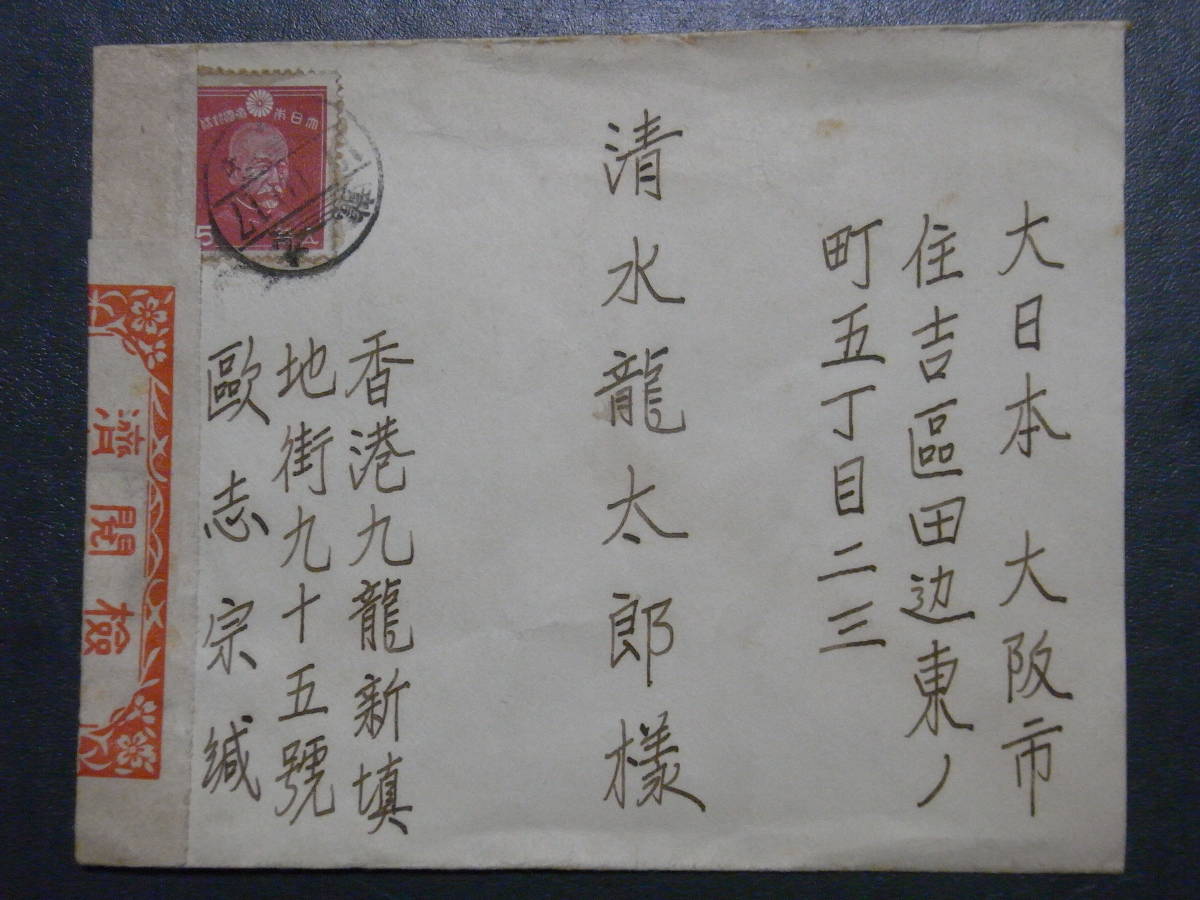 大日本 大阪市
住吉區田辺東ノ
町五丁目二三
清水龍太郎様
香港九龍新填
地街九十五號
歐志宗緘
大日本帝國郵便
5
檢閲濟